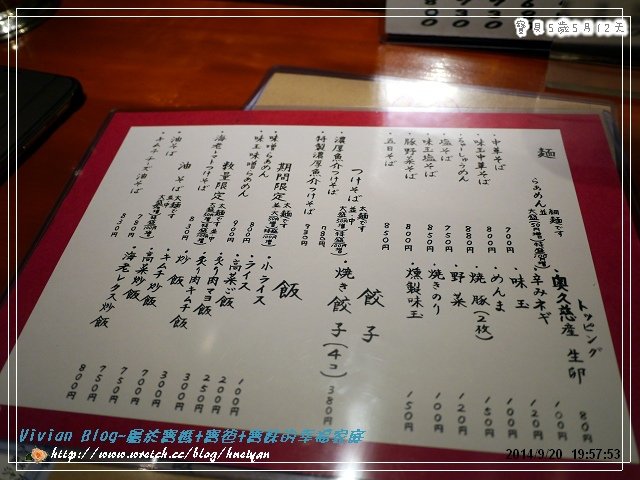 寶貝5歲5月12天
麺
らぁめん
細麺です
・中華そば 700円
・味玉中華そば 800円
・ちゃーしゅうめん
・塩そば 750円
・味玉塩そば 850円
・豚野菜そば 800円
・五目そば 850円
つけそば
太麺です
・濃厚魚介つけそば 780円
・特製濃厚魚介つけそば 980円
期間限定
太麺です
・味噌らぁめん 800円
・味玉味噌らぁめん 900円
数量限定
太麺です
・海老トマトつけそば
油そば
太麺です
・油そば
・キムチ大油そば
トッピング
・奥久慈産生卵 80円
・辛みネギ
・味玉 100円
・めんま 100円
・焼豚(2枚)
・野菜 120円
・焼きのり 100円
・燻製味玉 150円
餃子
・焼き餃子(4コ) 380円
飯
・小ライス 100円
・ライス
・高菜ご飯
・炙り肉マヨ飯
・炙り肉キムチ飯 300円
・炒飯
・キムチ炒飯
・高菜炒飯 750円
・海老レタス炒飯 800円
Vivian Blog~屬於寶媽+寶爸+寶妹的幸福家庭
http://www.wretch.cc/blog/hneiyan
2014/9/20 19:57:53